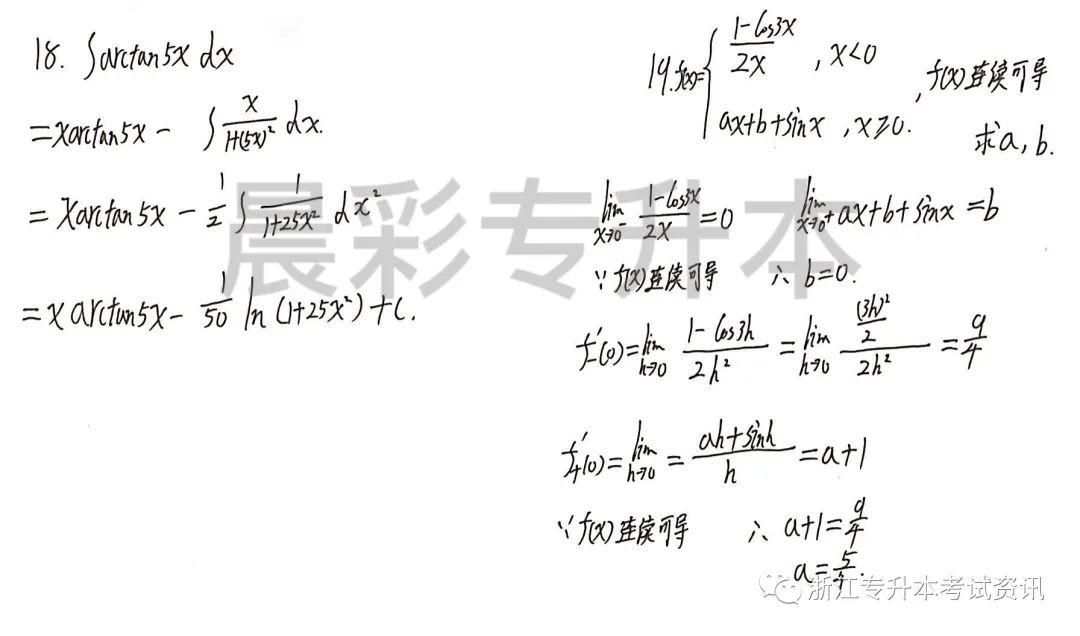 18. ∫arctan5x dx
=xarctan5x - ∫ x/(1+(5x)²) dx.
= xarctan5x - 1/2 ∫ 1/(1+25x²) dx²
= x arctan5x - 1/50 ln (1+25x²) + C.
19. f(x)= { (1-cos3x)/(2x) , x<0
ax+b+sinx , x≥0. , f(x)连续可导
求a, b.
lim x→0⁻ (1-cos3x)/(2x) = 0 lim x→0⁺ ax+b+sinx = b
∵ f(x)连续可导 ∴ b=0.
f₋′(0)= lim h→0 (1-cos3h)/(2h²) = lim h→0 ((3h)²/2)/(2h²) = 9/4
f₊′(0)= lim h→0 = (ah+sinh)/h = a+1
∵ f(x)连续可导 ∴ a+1= 9/4
a= 5/4.
晨彩专升本
浙江专升本考试资讯